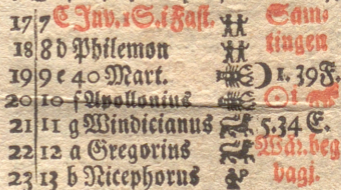 17 7 C Inv. 1 S. i Fast. Sam=
18 8 d Philemon lingen
19 9 e 40 Mart. 1. 39 F.
20 10 f Apollonius
21 11 g Windicianus 5.34 E.
22 12 a Gregorius Wär. beg
23 13 b Nicephorus vagi.